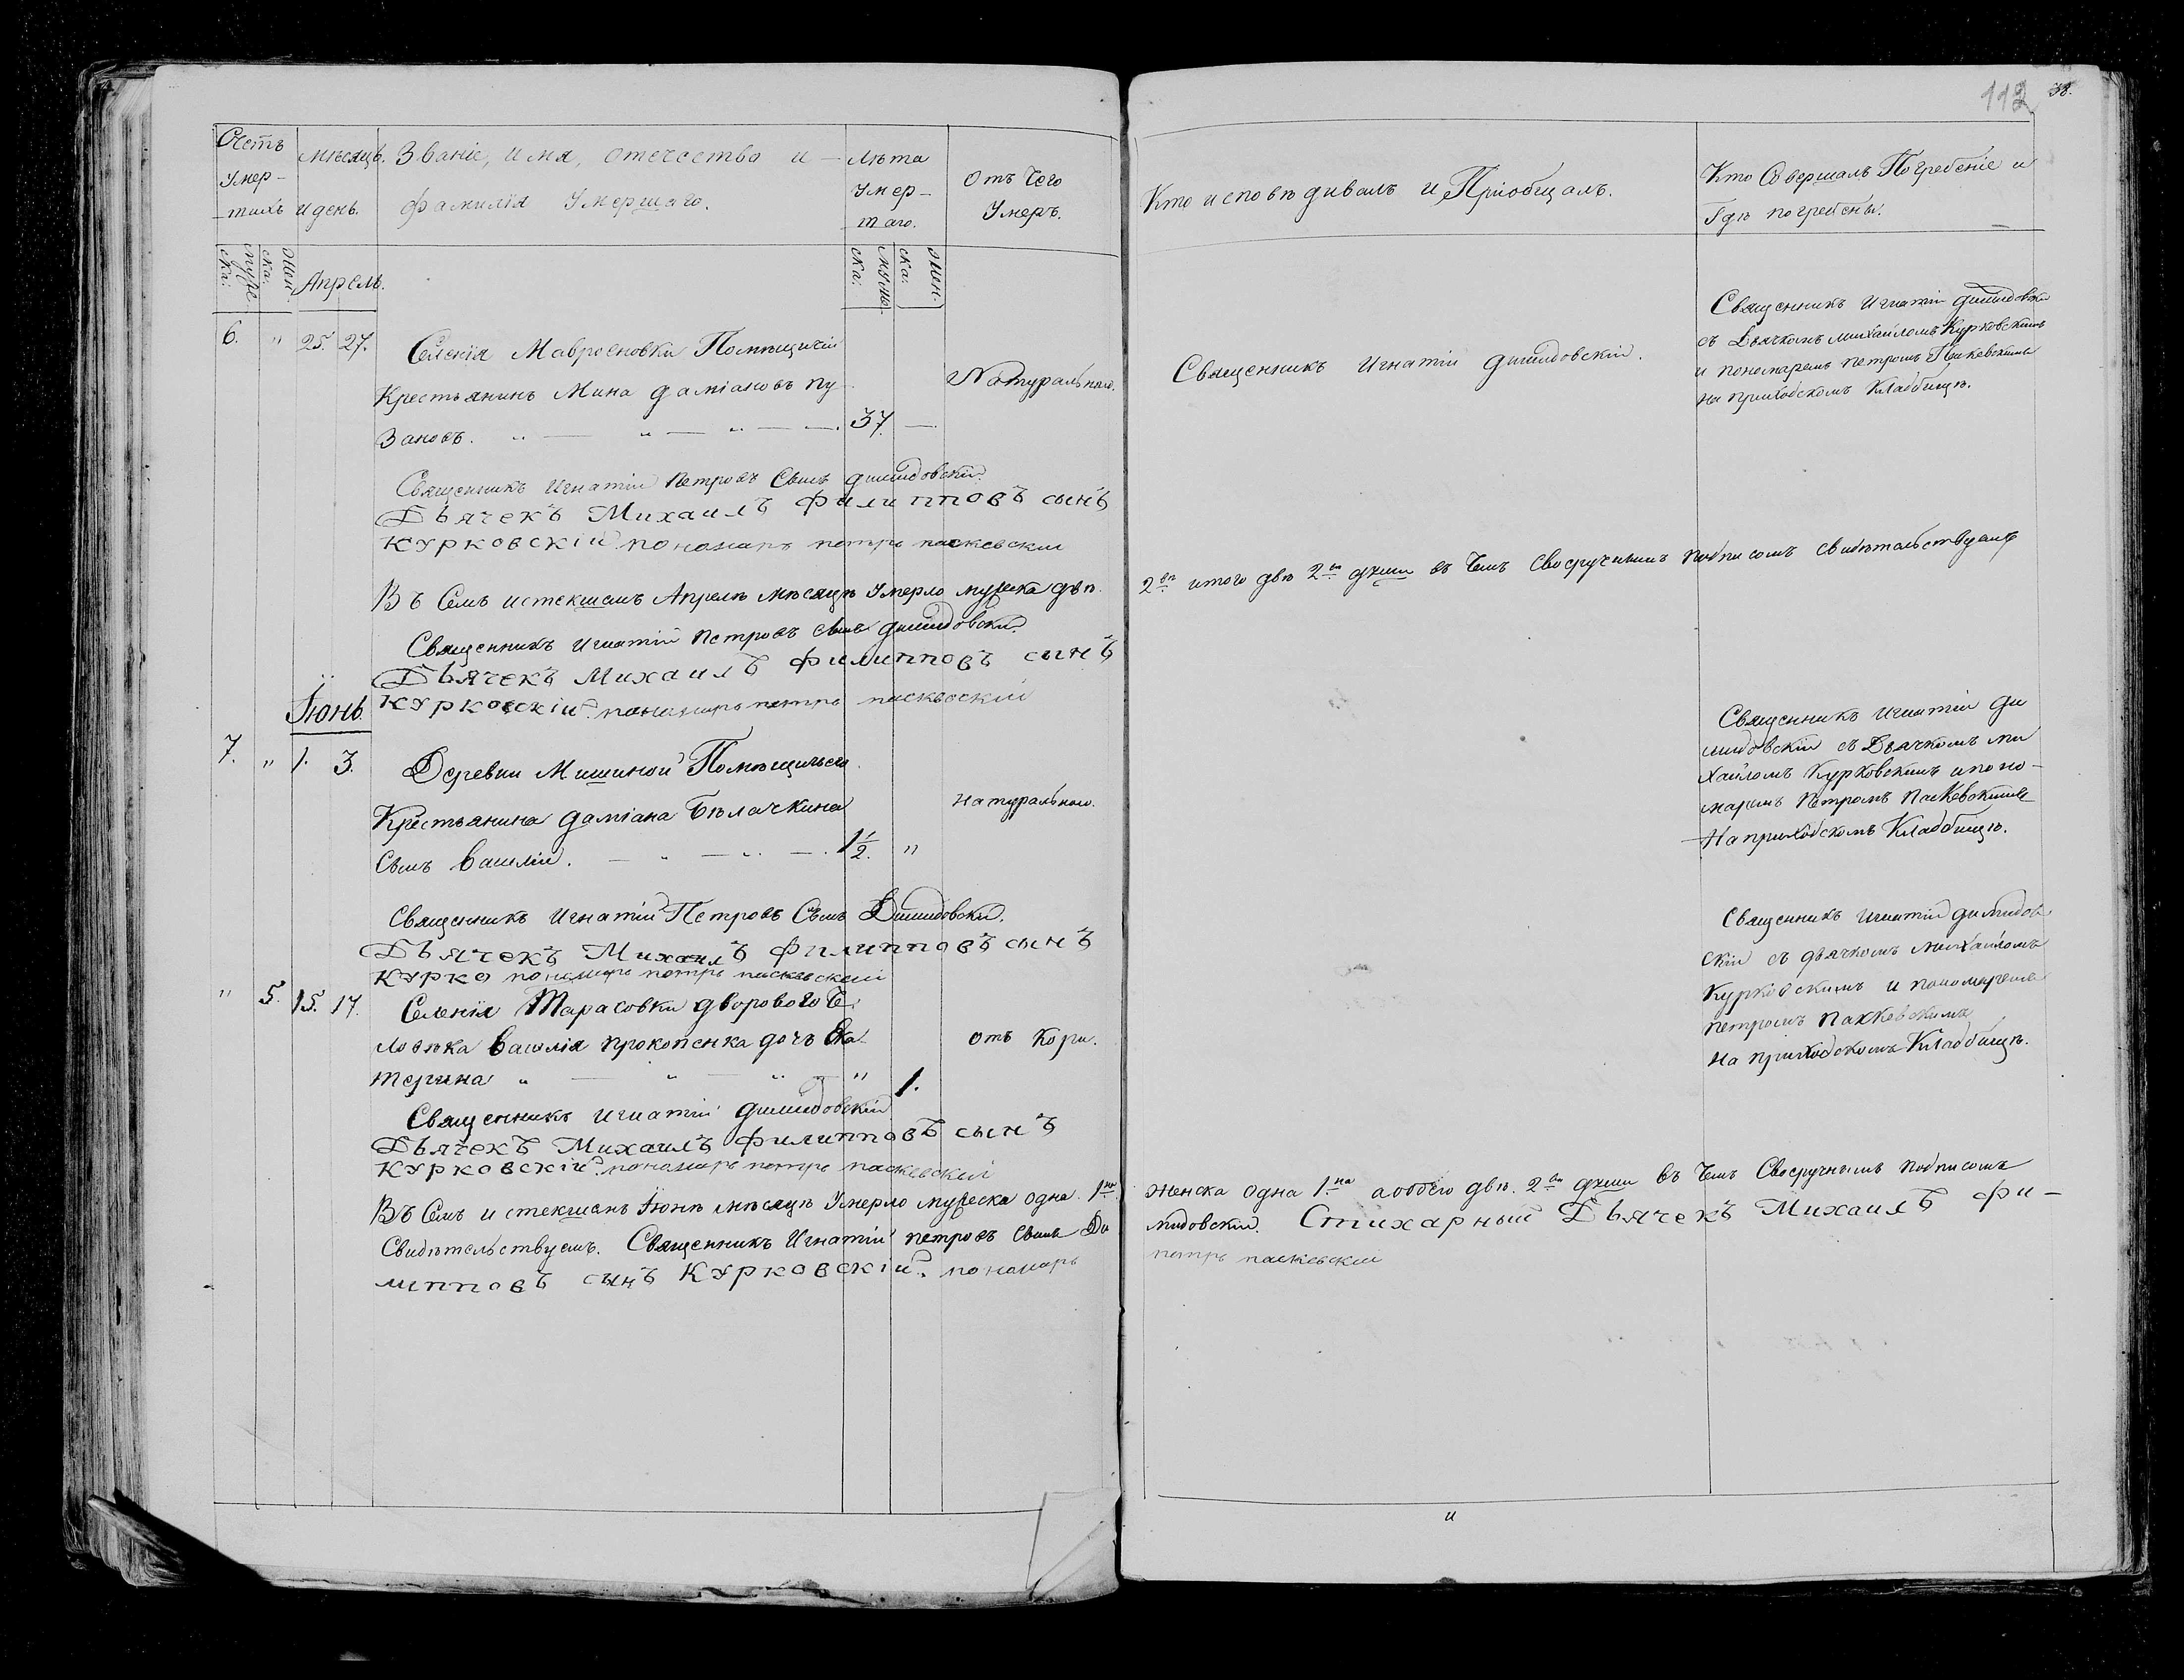 112 38.
Счетъ
умер-
-шихъ
Мѣсяцъ.
и день.
Званіе, имя, отечество и
фамилія Умершаго.
Лѣта
умер-
шаго.
Отъ чего
Умеръ.
Кто исповѣдывалъ и Пріобщалъ.
Кто Совершалъ Погребеніе и
Гдѣ погребены.
муже-
ска:
жен-
ска:
Апрель.
муже-
ска:
жен-
ска:
6. " 25. 27.
Селенія Мавроеновки Помѣщичій
Крестьянинъ Мина Даміановъ Пу-
зановъ. 37. —
Натуральною.
Священникъ Игнатій Димидовскій.
Священникъ Игнатій Димидовскій
съ Дьячкомъ Михайломъ Курковскимъ
и пономаремъ Петромъ Паскевскимъ
на приходскомъ Кладбищѣ.
Священникъ Игнатій Петровъ Сынъ Димидовскій.
Дьячекъ Михаилъ Филипповъ сынъ
Курковскій пономарь петръ паскевский
Въ Семъ истекшемъ Апрелѣ мѣсяцѣ Умерло мужеска двѣ. 2 ѣ итого двѣ 2 ѣ души въ чемъ Своеручнымъ подписомъ свидѣтельствуемъ
Священникъ Игнатій Петровъ сынъ Димидовскій.
Дьячекъ Михаилъ Филипповъ сынъ
Курковскій. пономарь петръ паскевский
Іюнь.
7. " 1. 3.
Деревни Мишиной Помѣщичьего
Крестьянина Даміана Бѣлачкина
Сынъ Василій. 1½. "
натуральною.
Священникъ Игнатій Ди
мидовскій съ Дьячкомъ ми
хайломъ Курковскимъ и поно-
маремъ Петромъ Паскевскимъ
На приходскомъ Кладбищѣ.
Священникъ Игнатій Петровъ Сынъ Димидовскій.
Дьячекъ Михаилъ Филипповъ сынъ
Курко пономарь петръ паскевский
" 5. 15. 17.
Селенія Тарасовки двороваго че
ловѣка Василія Прокопенка дочь Ека-
терина " 1.
отъ Кори.
Священникъ Игнатій Димидов
скій съ дьячкомъ Михайломъ
Курковскимъ и пономаремъ
петромъ Паскевскимъ
на приходскомъ Кладбищѣ.
Священникъ Игнатій Димидовскій
Дьячекъ Михаилъ Филипповъ сынъ
Курковскій. пономарь петръ паскевский
Въ Семъ истекшемъ Іюнѣ мѣсяцѣ Умерло мужеска одна 1 на женска одна 1 на а обоего двѣ. 2 ѣ души въ чемъ Своеручнымъ подписомъ
Свидѣтельствуемъ. Священникъ Игнатій Петровъ Сынъ Ди мидовскій. Стихарный Дьячекъ Михаилъ Фи-
липповъ сынъ Курковскій. пономарь петръ паскевский
и